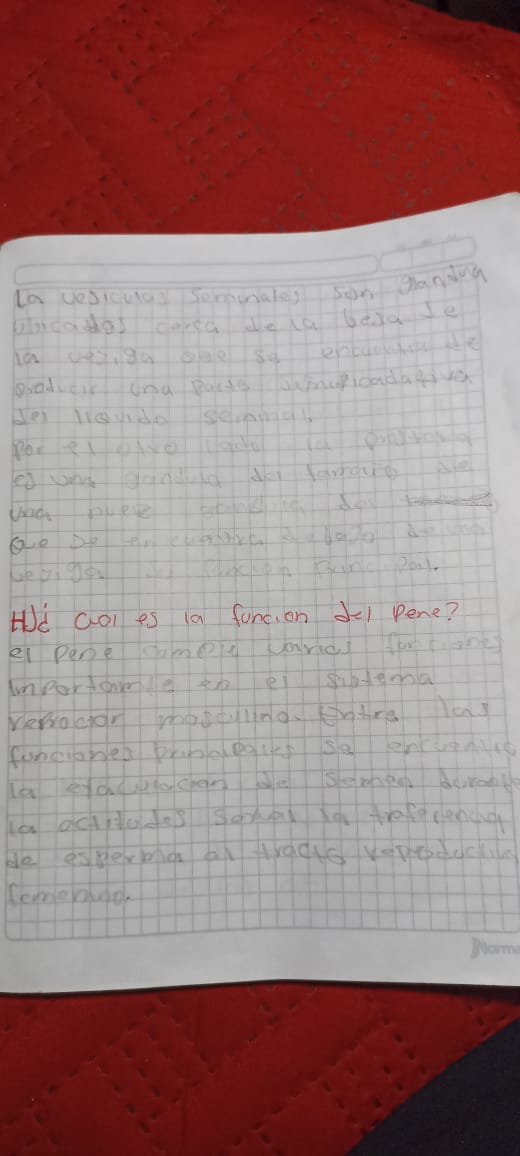 La vesiculas seminales son glandula
ubicadas cerca de la besa de
la vesiga que se encuentra de
producir una parte
del liquido seminal.
Por el otro lado la prostata
es una glandula del tamaño de
una nuez
Que se encuentra debajo de
vesiga funcion principal.
H)¿ cual es la funcion del Pene?
el pene cumple varias funciones
importante en el sistema
reproctor masculino. Entre las
funciones principales se encuentra
la eyaculacion de semen durante
la actitudes sexual la trasferencia
de esperma al tracto reproductivo
femenino.
Norma